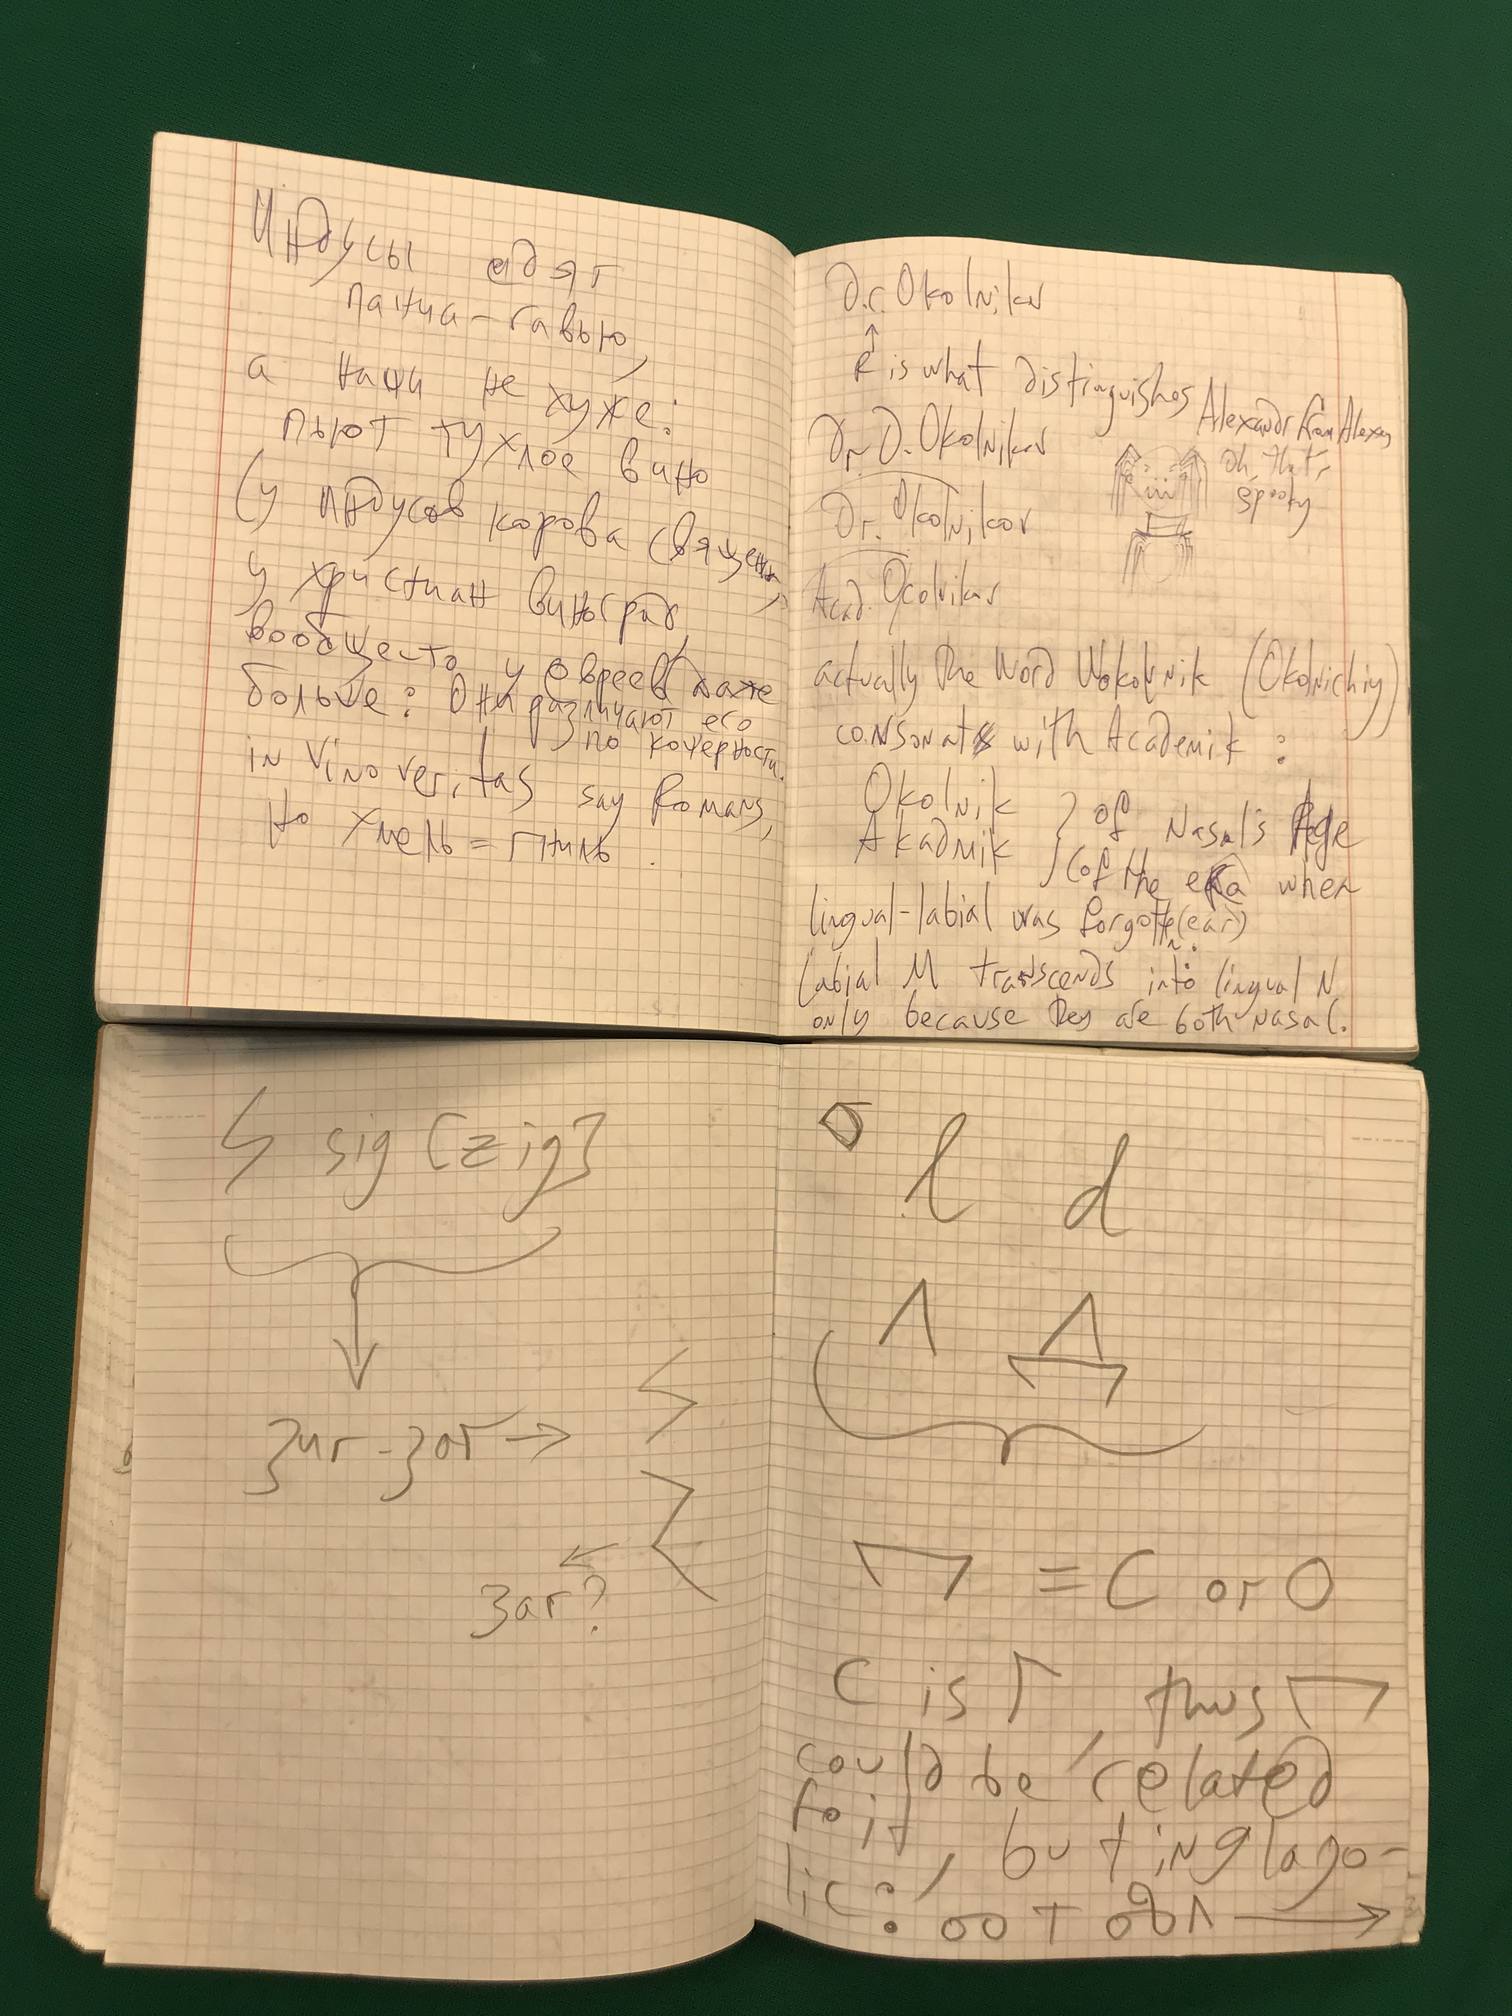 Индусы едят
панча-гавью,
а наши не хуже:
пьют тухлое вино
(у индусов корова священна,
у христиан виноград,
вообще-то у евреев даже
больше: они различают его
по кошерности.
in Vino veritas say Romans,
но хмель = гниль.
Dr. Okolnikov
↑
R is what distinguishes Alexandr from Alexey
Dr D. Okolnikov
oh, that's
spooky
Dr. Okolnikov
Acad. Ocolnikov
actually the word Okolnik (Okolnichiy)
consonats with Academik:
Okolnik
Akadmik
} of Nasal's Age
(of the era when
lingual-labial was forgotte(ear)
Labial M transcends into lingual N
only because they are both nasal.
sig [zig]
зиг-заг →
← 
заг?
l d
Λ Δ
= C or O
C is Г, thus
could be related
to it, but in glago-
lic: